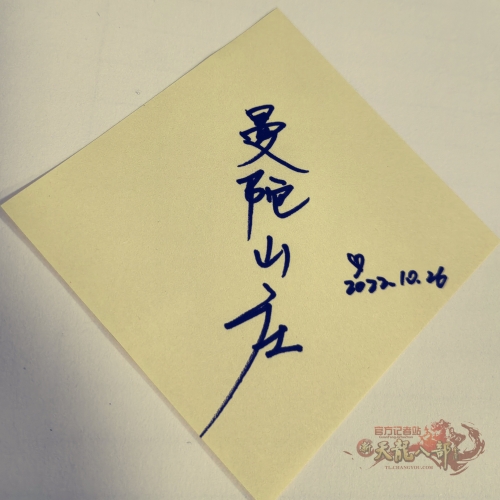 曼陀山庄
2022.10.26
官方记者站
新天龍八部
TL.CHANGYOU.COM